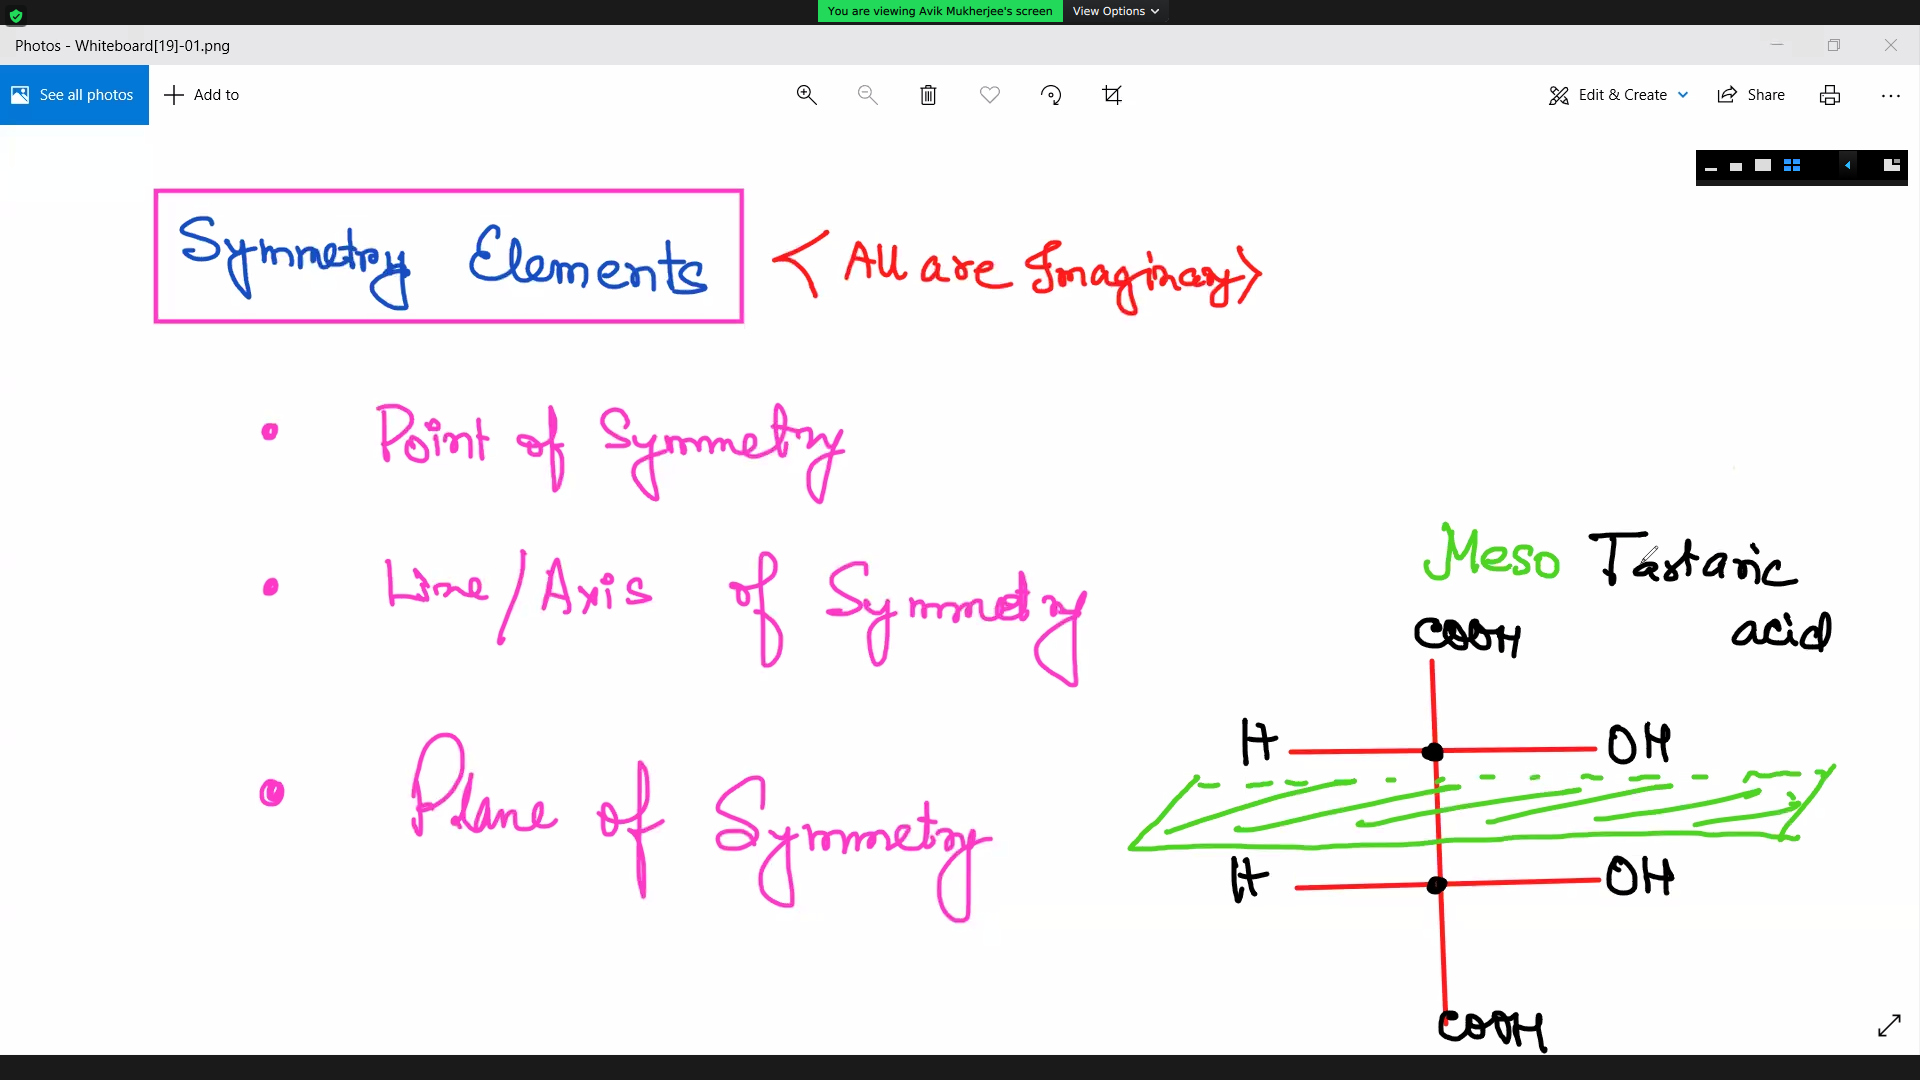 You are viewing Avik Mukherjee's screen View Options
Photos - Whiteboard[19]-01.png
See all photos Add to Edit & Create Share
Symmetry Elements <All are Imaginary>
• Point of Symmetry
• Line/Axis of Symmetry
• Plane of Symmetry
Meso Tartaric
acid
COOH
H OH
H OH
COOH